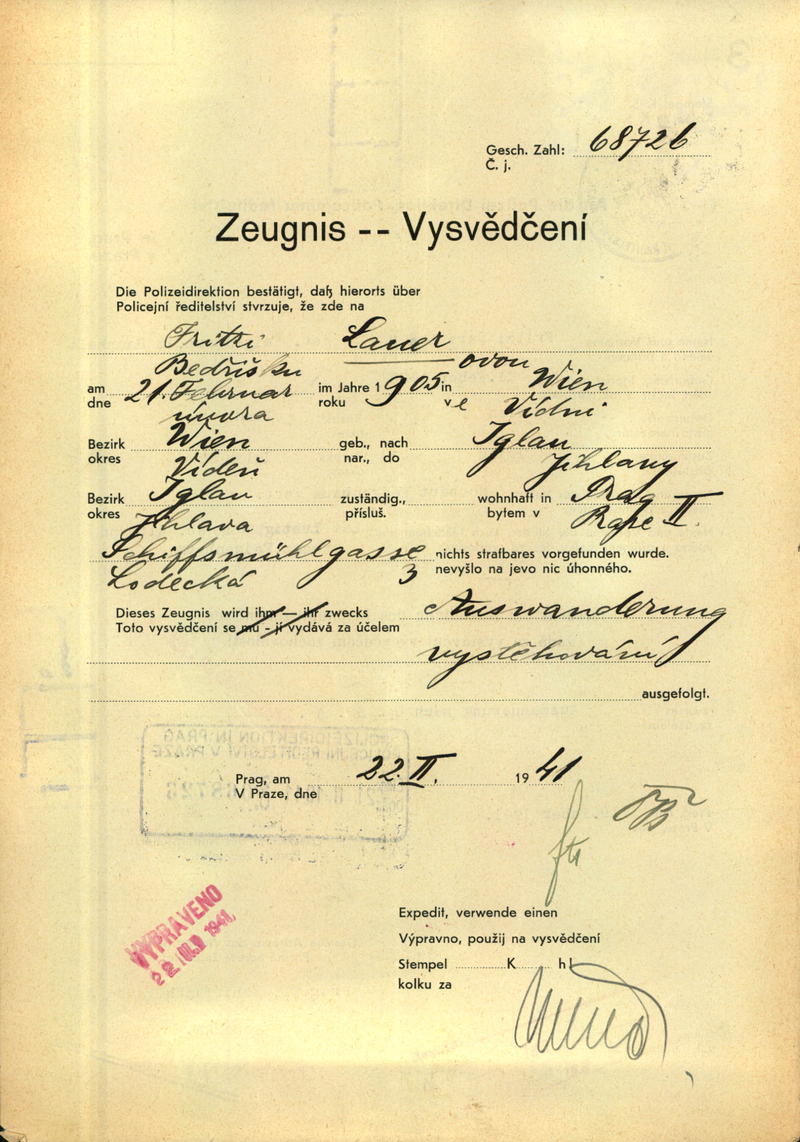 Gesch. Zahl: 68726
Č. j.
Zeugnis -- Vysvědčení
Die Polizeidirektion bestätigt, daß hierorts über
Policejní ředitelství stvrzuje, že zde na
Fritzi Lauer
Bedřišku ovou
am 21. Februar im Jahre 1905 in Wien
dne února roku ve Vídni
Bezirk Wien geb., nach Iglau
okres Vídeň nar., do Jihlavy
Bezirk Iglau zuständig., wohnhaft in Prag
okres Jihlava přísluš. bytem v Praze II.
Schiffsmühlgasse nichts strafbares vorgefunden wurde.
Lodecká 3 nevyšlo na jevo nic úhonného.
Dieses Zeugnis wird ihm — ihr zwecks Auswanderung
Toto vysvědčení se mu - jí vydává za účelem
vystěhování
ausgefolgt.
POLIZEIDIREKTION IN PRAG
POLICEJNÍ ŘEDITELSTVÍ V PRAZE
Prag, am 22. II. 1941
V Praze, dne
VYPRAVENO
22. III. 1941
Expedit, verwende einen
Výpravno, použij na vysvědčení
Stempel K h
kolku za